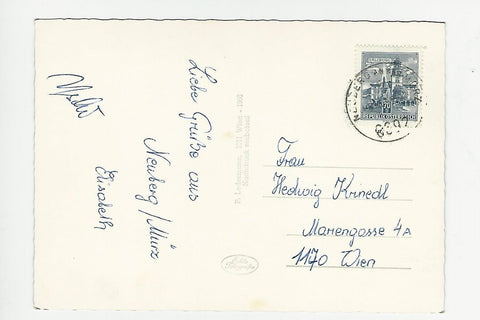 Liebe Grüße aus
Neuberg/Mürz
Elisabeth
P. Ledermann, 1011 Wien - 1902
Nachdruck verboten!
Echte
REPUBLIK ÖSTERREICH
Frau
Hedwig Krinedl
Mariengasse 4A
1170 Wien